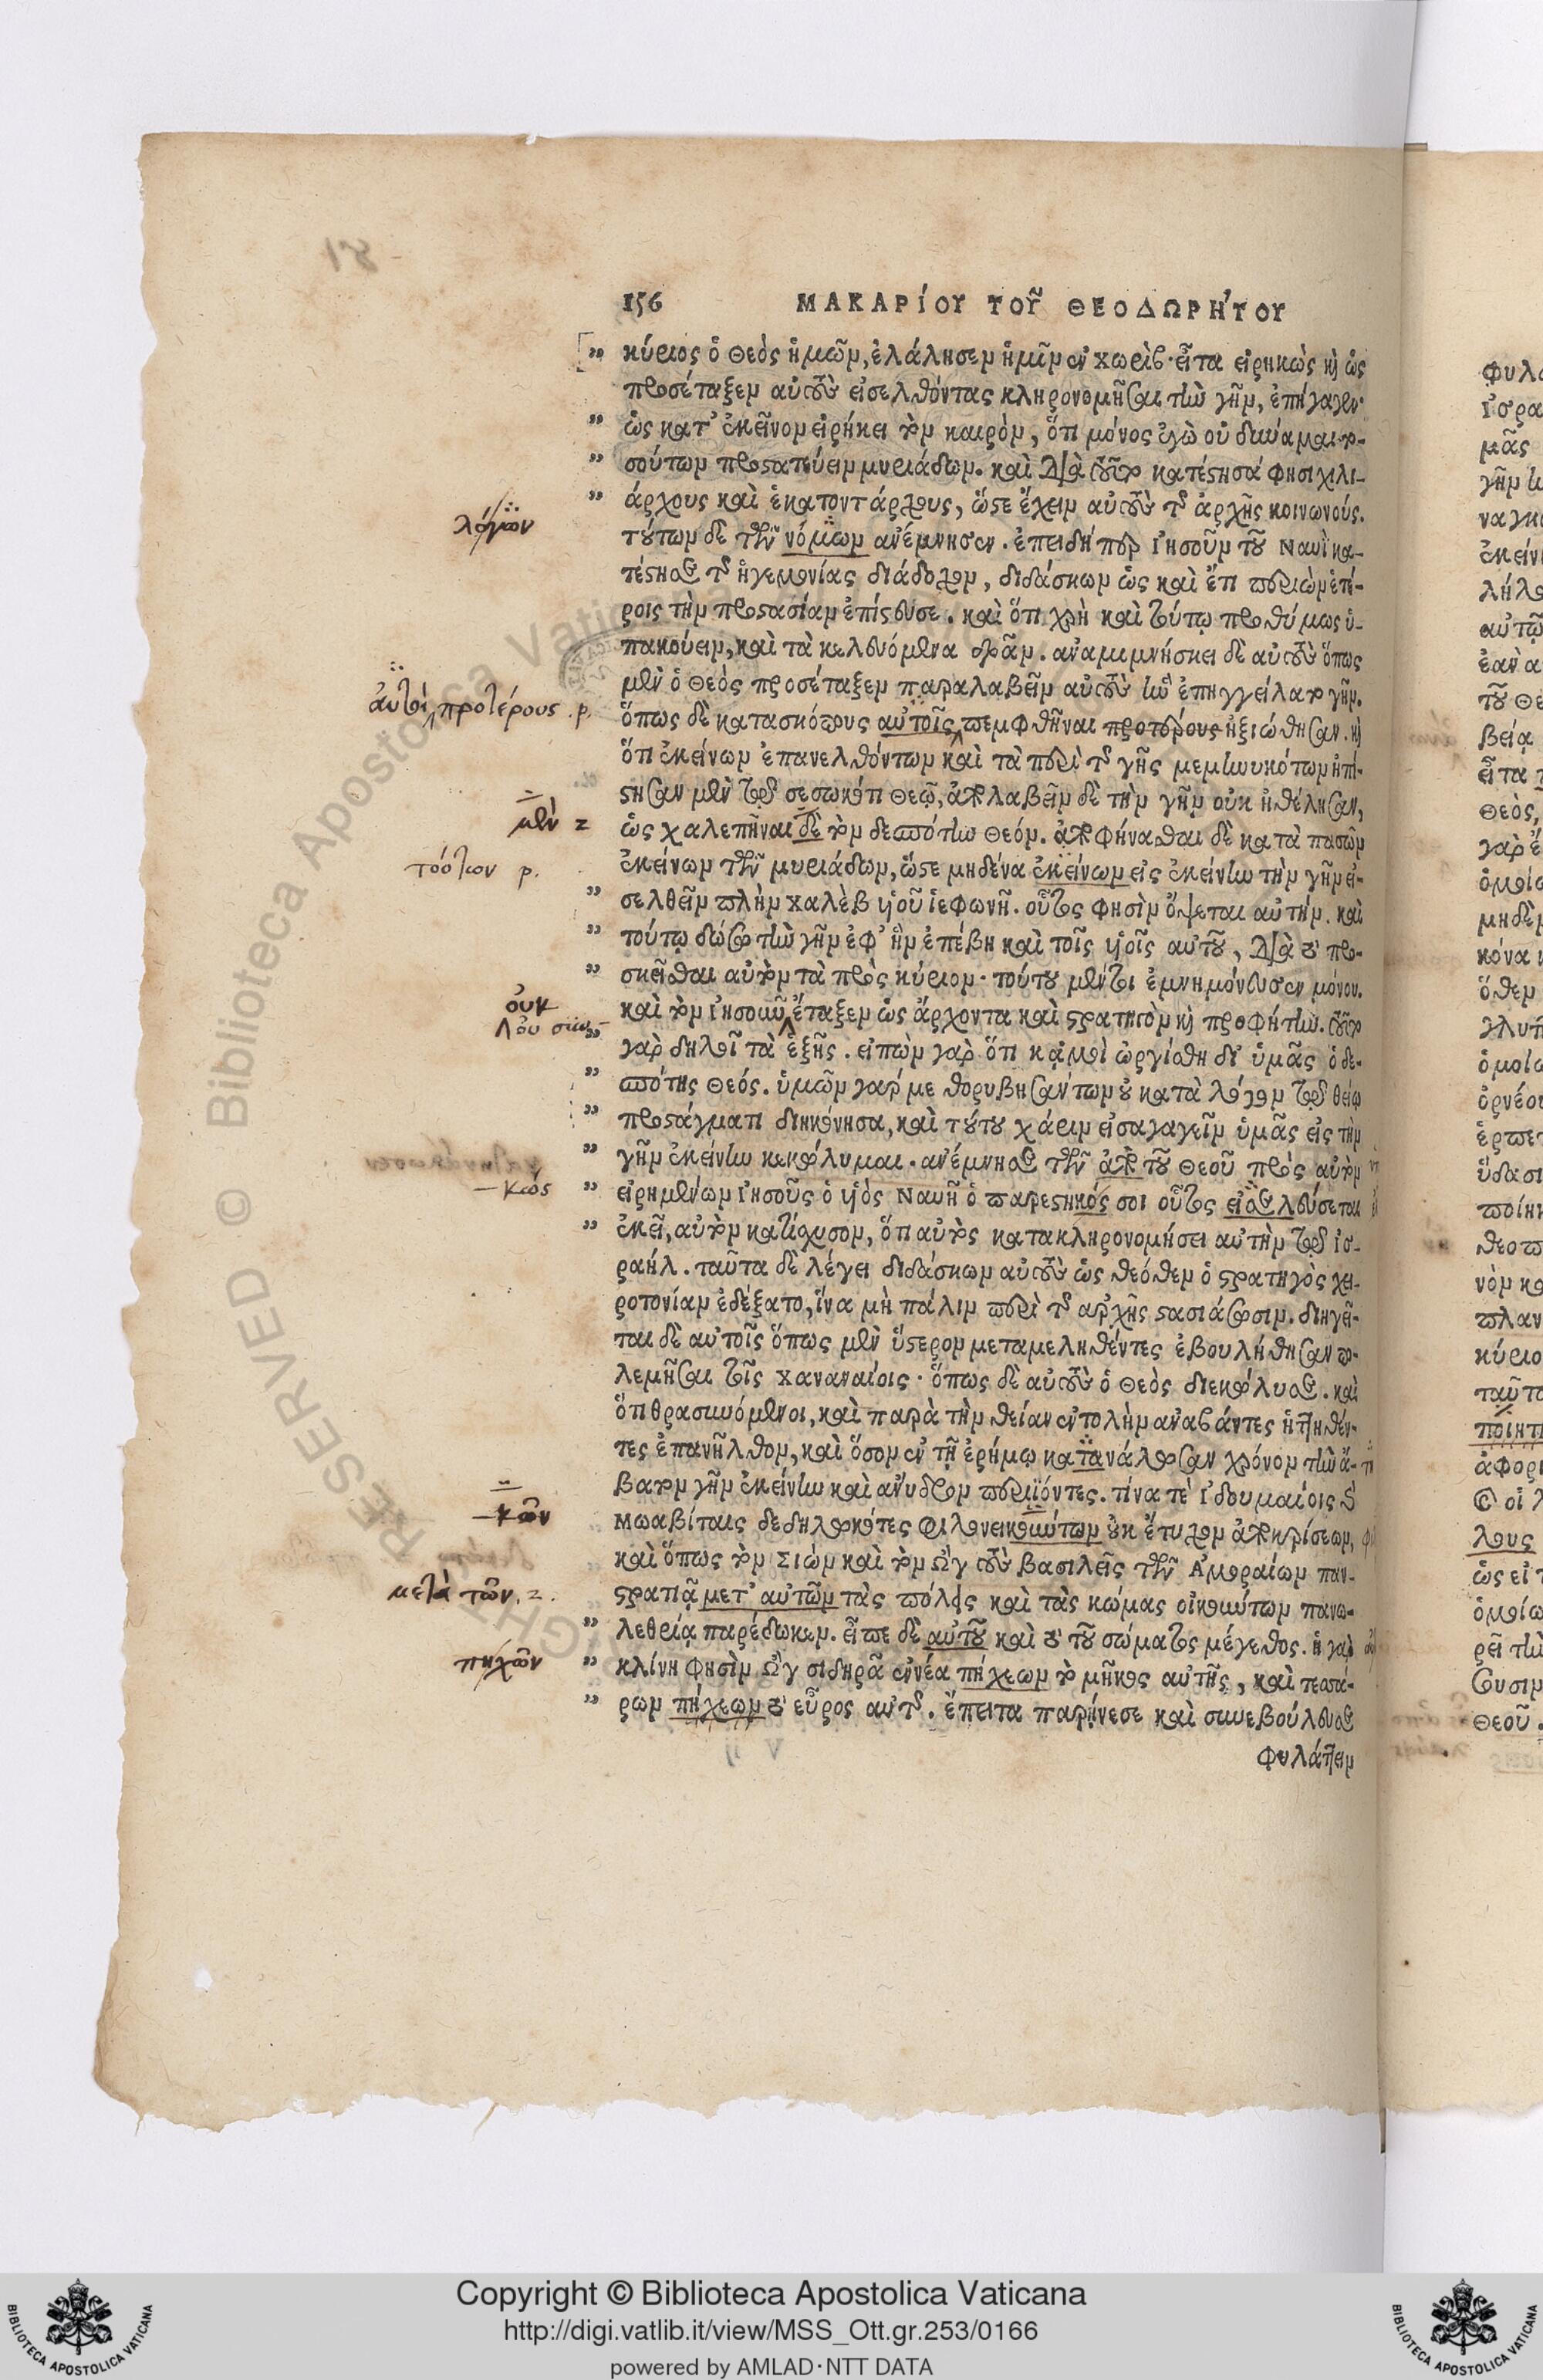 156 ΜΑΚΑΡίΟΥ ΤΟΥ͂ ΘΕΟΔΩΡΉΤΟΥ
” κύριος ὁ Θεὸς ἡμῶν, ἐλάλησεν ἡμῖν ἐν χωρὶβ· εἶτα εἰρηκὼς κὶ ὡς
προσέταξεν αὐτοὺς εἰσελθόντας κληρονομῆσαι τὴν γῆν, ἐπήγαγεν·
” ὡς κατ’ ἐκεῖνον εἰρήκει τὸν καιρὸν, ὅτι μόνος ἐγὼ οὐ δύναμαι το-
” σούτων προστατεύειν μυριάδων. καὶ διὰ τοῦτο κατέστησά φησι χιλι-
” άρχους καὶ ἑκατοντάρχους, ὥστε ἔχειν αὐτοὺς τῆς ἀρχῆς κοινωνούς.
λόγων
τούτων δὲ τῶν νόμων ἀνέμνησεν. ἐπειδήπερ Ἰησοῦν τοῦ Ναυῆ κα-
τέστησε τῆς ἡγεμονίας διάδοχον, διδάσκων ὡς καὶ ἔτι περιὼν ἑτέ-
ροις τὴν προστασίαν ἐπίστευσε. καὶ ὅτι χρὴ καὶ τούτῳ προθύμως ὑ-
πακούειν, καὶ τὰ κελευόμενα δρᾶν. ἀναμιμνήσκει δὲ αὐτοὺς ὅπως
μὲν ὁ Θεὸς προσέταξεν παραλαβεῖν αὐτοὺς ἣν ἐπηγγείλατο γῆν.
αὐτοὶ προτέρους . p.
ὅπως δὲ κατασκόπους αὐτοῖς πεμφθῆναι προτέρους ἠξιώθησαν. κὶ
ὅτι ἐκείνων ἐπανελθόντων καὶ τὰ περὶ τῆς γῆς μεμηνυκότων ἠπί-
στησαν μὲν τῷ σεσωκότι Θεῷ, ἀπολαβεῖν δὲ τὴν γῆν οὐκ ἠθέλησαν,
μὲν z
ὡς χαλεπῆναι δὲ τὸν δεσπότην Θεόν. ἀποφήνασθαι δὲ κατὰ πασῶν
τούτων p.
ἐκείνων τῶν μυριάδων, ὥστε μηδένα ἐκείνων εἰς ἐκείνην τὴν γῆν εἰ-
” σελθεῖν πλὴν χαλὲβ υἱοῦ ἰεφωνῆ. οὗτος φησὶν ὄψεται αὐτήν. καὶ
” τούτῳ δώσω τὴν γῆν ἐφ’ ἣν ἐπέβη καὶ τοῖς υἱοῖς αὐτοῦ, διὰ τὸ προ-
” σκεῖσθαι αὐτὸν τὰ πρὸς κύριον· τούτου μέντοι ἐμνημόνευσεν μόνου.
οὐκ
καὶ τὸν Ἰησοῦν ἔταξεν ὡς ἄρχοντα καὶ στρατηγὸν κὶ προφήτην. τοῦτο
γὰρ δηλοῖ τὰ ἑξῆς. εἰπὼν γὰρ ὅτι κᾀμοὶ ὠργίσθη δι’ ὑμᾶς ὁ δε-
” σπότης Θεός. ὑμῶν γάρ με θορυβησάντων οὐ κατὰ λόγον τῷ θείῳ
” προστάγματι διηκόνησα, καὶ τούτου χάριν εἰσαγαγεῖν ὑμᾶς εἰς τὴν
” γῆν ἐκείνην κεκώλυμαι. ἀνέμνησε τῶν ἀπὸ τοῦ Θεοῦ πρὸς αὐτὸν
–κώς
” εἰρημένων Ἰησοῦς ὁ υἱὸς Ναυῆ ὁ παρεστηκός σοι οὗτος εἰσελεύσεται
” ἐκεῖ, αὐτὸν κατίσχυσον, ὅτι αὐτὸς κατακληρονομήσει αὐτὴν τῷ ἰσ-
ραήλ. ταῦτα δὲ λέγει διδάσκων αὐτοὺς ὡς θεόθεν ὁ στρατηγὸς χει-
ροτονίαν ἐδέξατο, ἵνα μὴ πάλιν περὶ τῆς ἀρχῆς στασιάσωσιν. διηγεῖ-
ται δὲ αὐτοῖς ὅπως μὲν ὕστερον μεταμεληθέντες ἐβουλήθησαν πο-
λεμῆσαι τοῖς χαναναίοις· ὅπως δὲ αὐτοὺς ὁ Θεὸς διεκώλυσε. καὶ
ὅτι θρασυνόμενοι, καὶ παρὰ τὴν θείαν ἐντολὴν ἀναβάντες ἡττηθέν-
τες ἐπανῆλθον, καὶ ὅσον ἐν τῇ ἐρήμῳ κατανάλωσαν χρόνον τὴν ἄ-
βατον γῆν ἐκείνην καὶ ἄνυδρον περιϊόντες. τίνα τε Ἰδουμαίοις ἢ
–κῶν
Μωαβίταις δεδηλωκότες φιλονεικούντων οὐκ ἔτυχον ἀποκρίσεων,
καὶ ὅπως τὸν Σιὼν καὶ τὸν Ὢγ τοὺς βασιλεῖς τῶν Ἀμοραίων παν-
μετὰ τῶν. z.
στρατιᾷ μετ’ αὐτῶν τὰς πόλεις καὶ τὰς κώμας οἰκούντων πανω-
” λεθρίᾳ παρέδωκεν. εἶπε δὲ αὐτοῦ καὶ τὸ τοῦ σώματος μέγεθος. ἡ γὰρ
πηχῶν
” κλίνη φησὶν Ὢγ σιδηρᾶ ἐννέα πήχεων τὸ μῆκος αὐτῆς, καὶ τεσσά-
” ρων πήχεων τὸ εὖρος αὐτῆς. ἔπειτα παρῄνεσε καὶ συνεβούλευσε
φυλάττειν
Copyright © Biblioteca Apostolica Vaticana
http://digi.vatlib.it/view/MSS_Ott.gr.253/0166
powered by AMLAD·NTT DATA
BIBLIOTECA APOSTOLICA VATICANA
BIBLIOTECA APOSTOLICA VATICANA